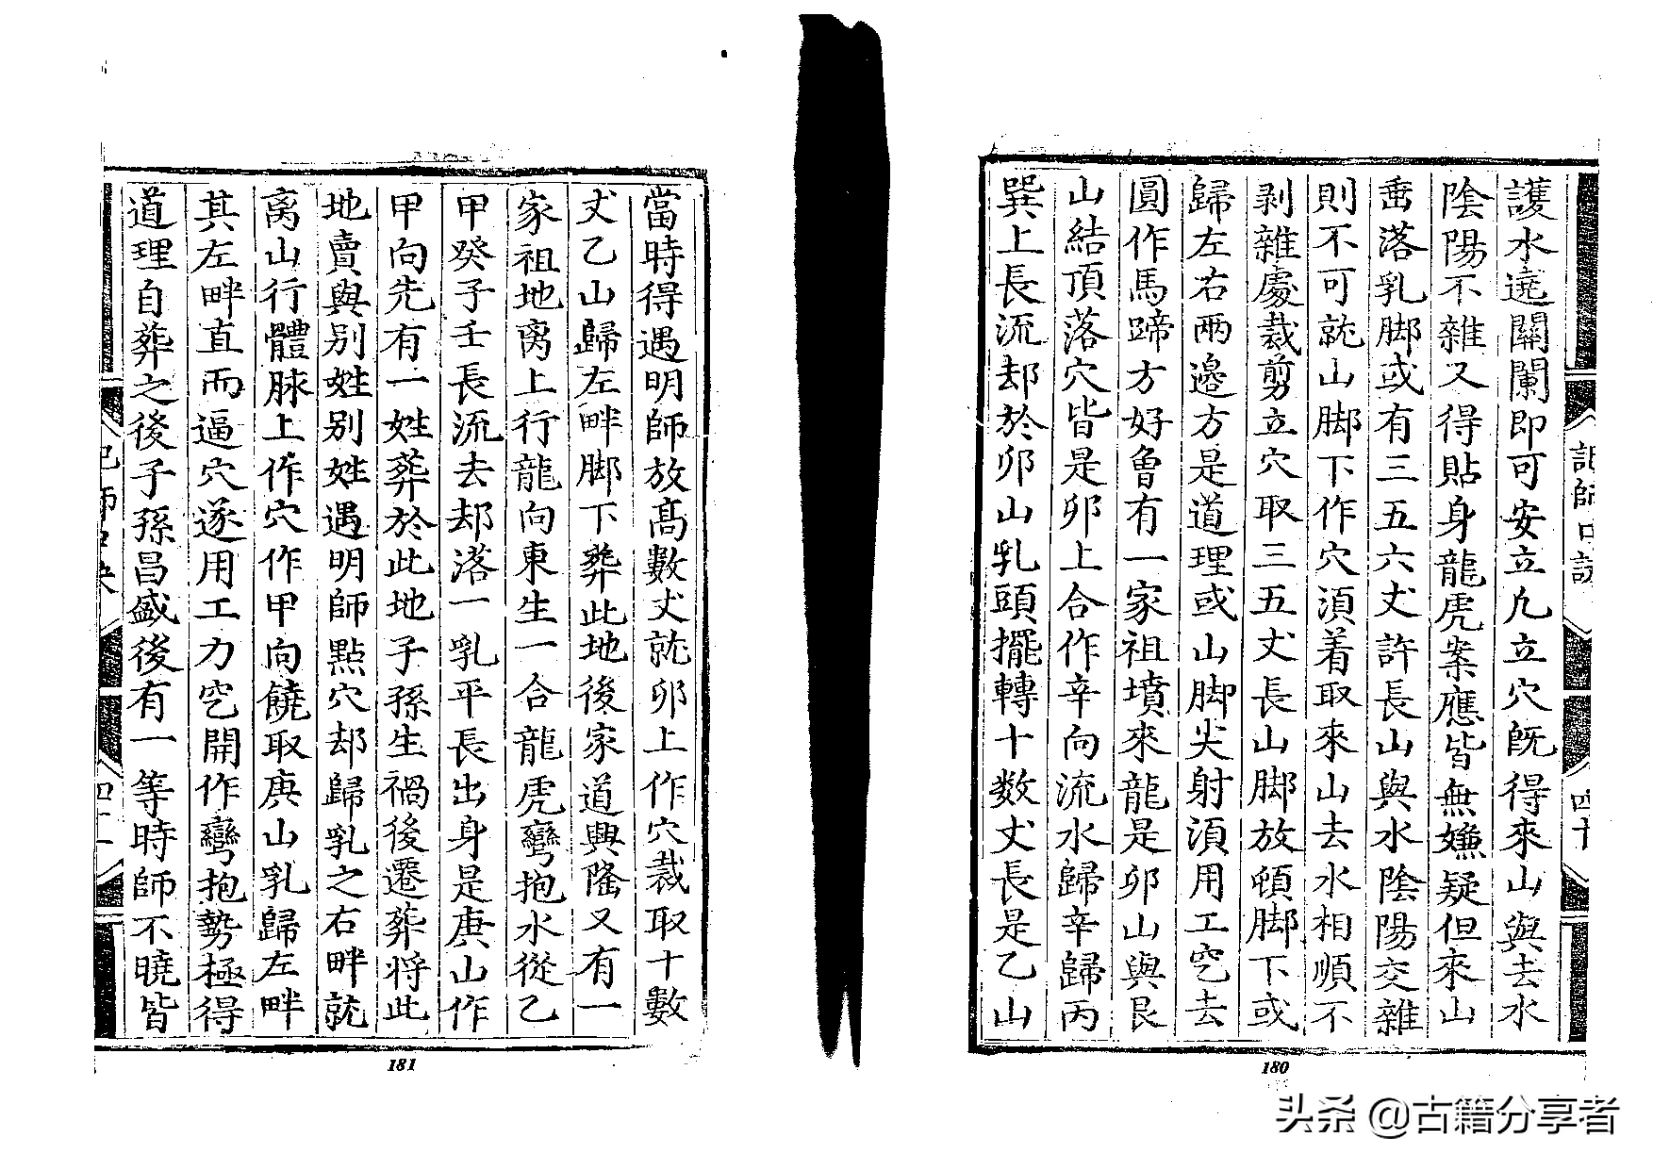 護水遶關闌即可安立凢立穴旣得來山與去水
陰陽不雜又得貼身龍虎案應皆無嫌疑但來山
垂落乳脚或有三五六丈許長山與水陰陽交雜
則不可就山脚下作穴湏着取來山去水相順不
剥雜處裁剪立穴取三五丈長山脚放頓脚下或
歸左右兩邊方是道理或山脚尖射湏用工穵去
圓作馬蹄方好魯有一家祖墳來龍是卯山與艮
山結頂落穴皆是卯上合作辛向流水歸辛歸丙
巽上長流却於卯山乳頭擺轉十数丈長是乙山
四十
當時得遇明師放高數丈就卯上作穴裁取十數
丈乙山歸左畔脚下塟此地後家道興隆又有一
家祖地离上行龍向東生一合龍虎彎抱水從乙
甲癸子壬長流去却落一乳平長出身是庚山作
甲向先有一姓葬於此地子孫生禍後遷葬将此
地賣與别姓别姓遇明師點穴却歸乳之右畔就
离山行體脉上作穴作甲向饒取庚山乳歸左畔
其左畔直而逼穴遂用工力穵開作彎抱勢極得
道理自葬之後子孫昌盛後有一等時師不曉皆
181
180
头条 @古籍分享者